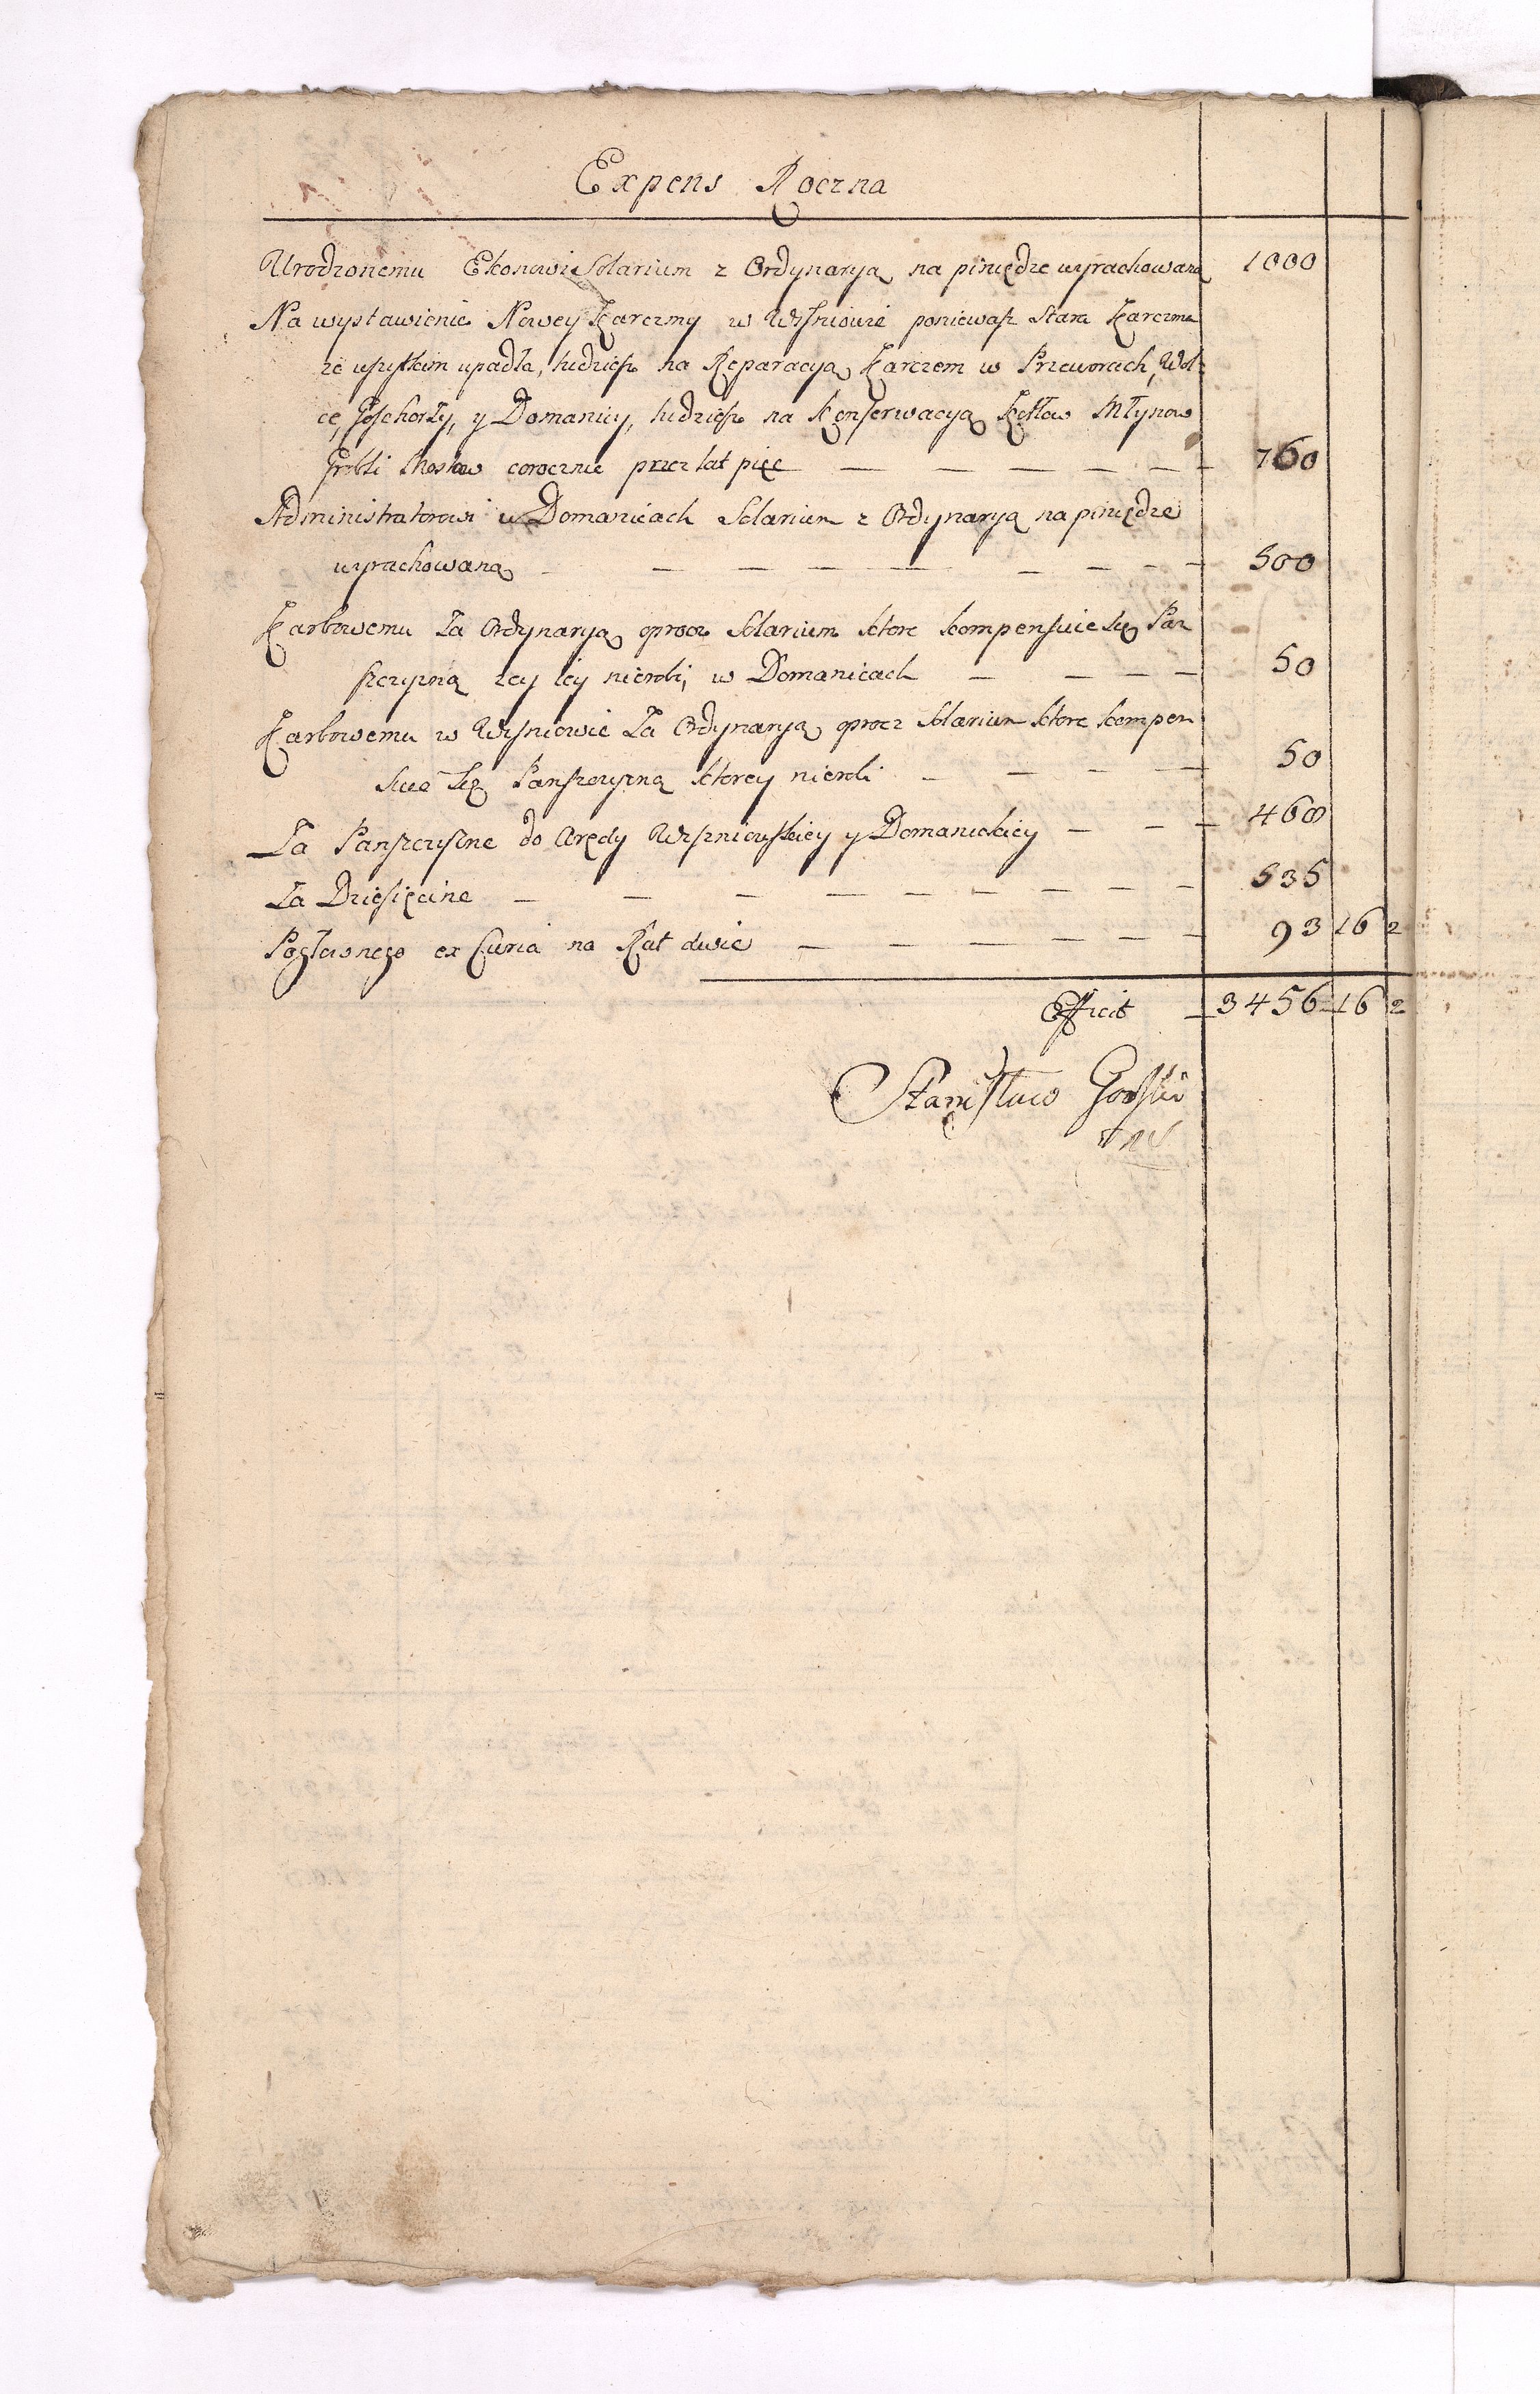 Expens Roczna
Urodzonemu Ekonowi Solarium z Ordynaryą na piniędze wyrachowaną 1000
Na wystawienie Nowey Karczmy w Wiśniowie poniewasz Stara Karczma
ze wszytkim upadła, tudziesz na Reparacyą Karczem w Przeworach, Wol-
ce, Goschorzy, y Domanicy, tudziesz na Konserwacyą Kotłow Młynow
Grobli Mostow corocznie przez lat pięc — — — — — — 760
Administratorowi w Domanicach Solarium z Ordynaryą na piniędze
wyrachowaną — — — — — — — — 500
Karbowemu Za Ordynaryą oprocz Solarium ktore kompensuie się Pan
szczyzną zey tey nierobi, w Domanicach — — — — 50
Karbowemu w Wisniowie Za Ordynaryą oprocz Solarium ktore kompen
suie się Panszczyzną ktorey nierobi — — — — 50
Za Panszczyzne do Arędy Wiszniowskiey y Domanickiey — — — 468
Za Dziesięcine — — — — — — — — — 535
Pogłownego ex Curia na Rat dwie — — — — — — 93 16 2
Efficit — 3456 — 16 2
Stanisław Gorski